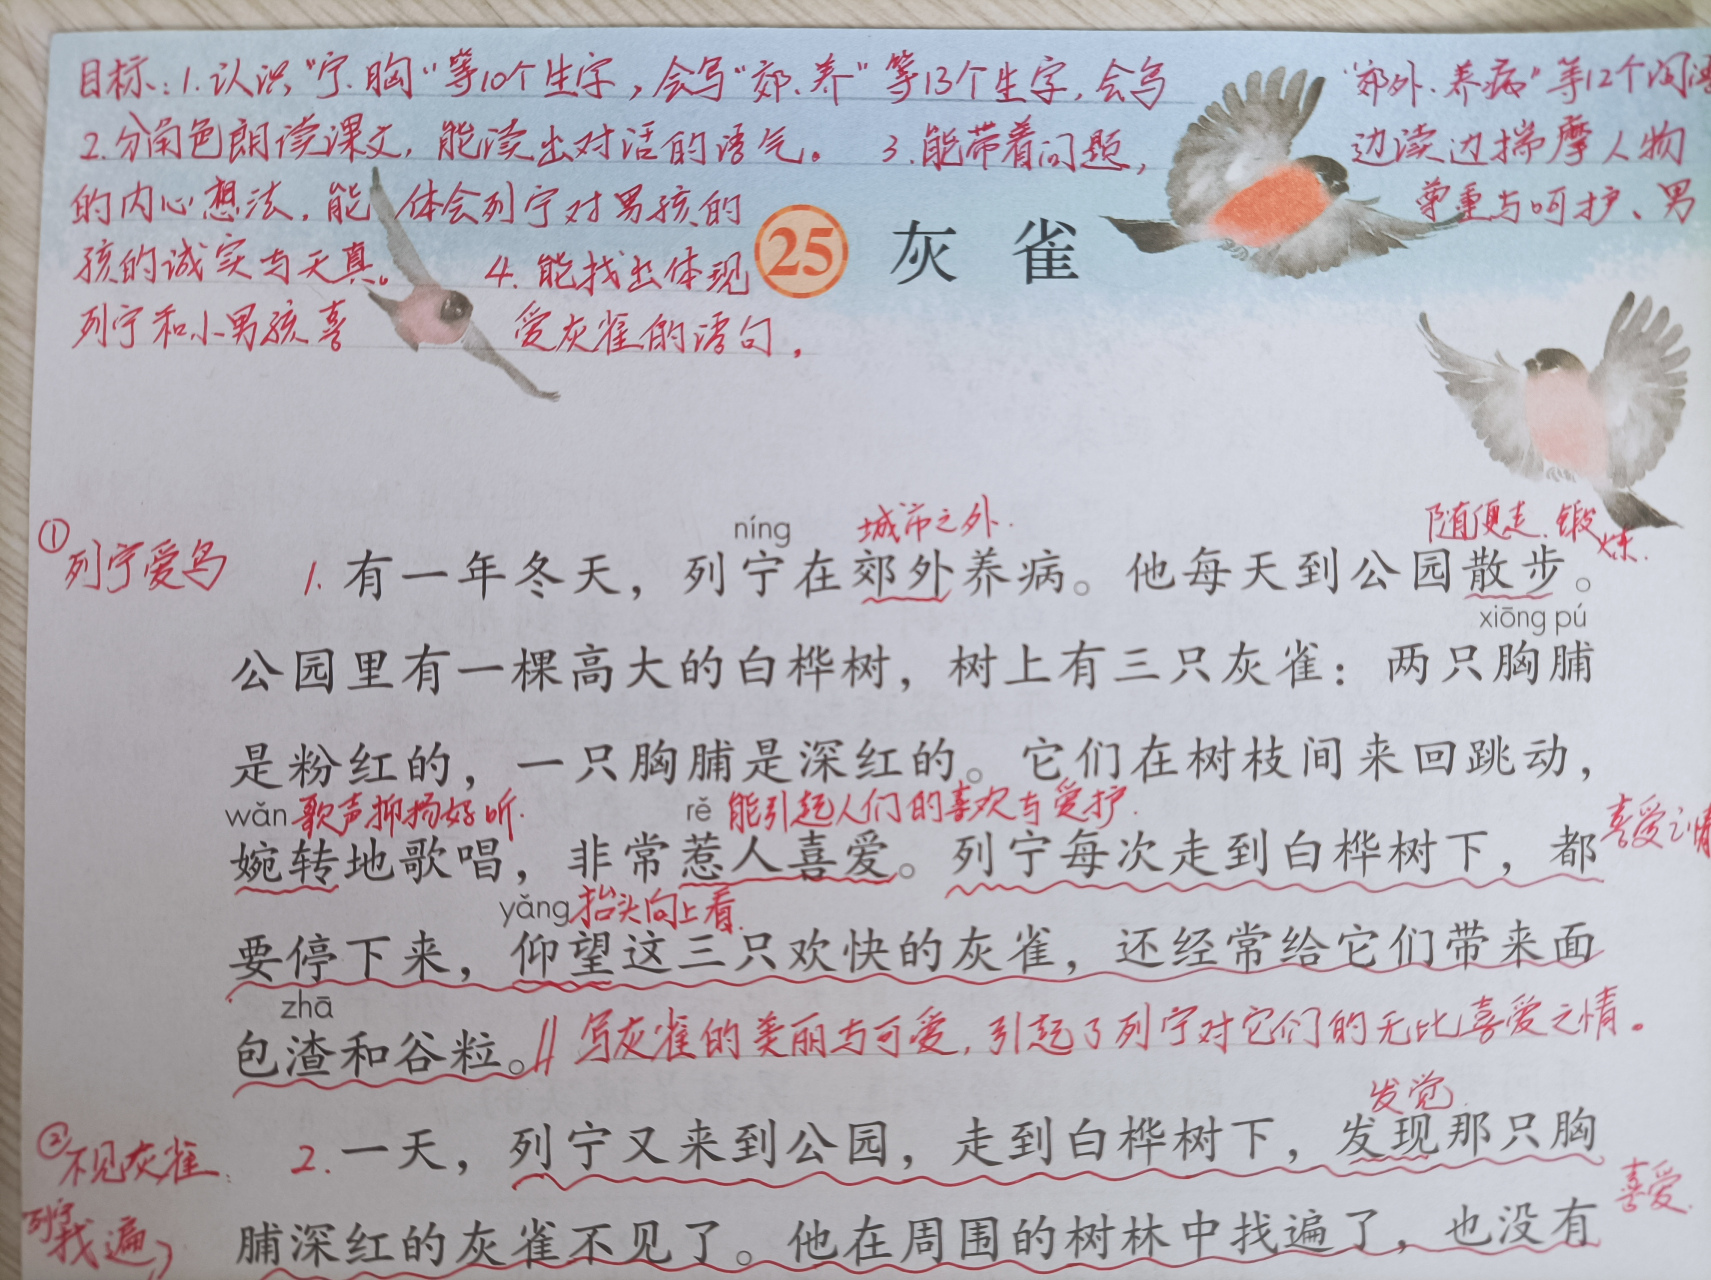 目标：1.认识"宁.胸"等10个生字，会写"郊.养"等13个生字，会写"郊外.养病"等12个词语
2.分角色朗读课文，能读出对话的语气。 3.能带着问题，边读边揣摩人物
的内心想法，能体会列宁对男孩的尊重与呵护、男
孩的诚实与天真。 4.能找出体现
列宁和小男孩喜爱灰雀的语句，
25 灰雀
níng 城市之外. 随便走.锻炼.
① 列宁爱鸟 1.有一年冬天，列宁在郊外养病。他每天到公园散步。
xiōng pú
公园里有一棵高大的白桦树，树上有三只灰雀：两只胸脯
是粉红的，一只胸脯是深红的。它们在树枝间来回跳动，
wǎn 歌声抑扬好听. rě 能引起人们的喜欢与爱护.
婉转地歌唱，非常惹人喜爱。列宁每次走到白桦树下，都 喜爱之情
yǎng 抬头向上看.
要停下来，仰望这三只欢快的灰雀，还经常给它们带来面
zhā
包渣和谷粒。// 写灰雀的美丽与可爱，引起了列宁对它们的无比喜爱之情。
发觉
② 不见灰雀. 2.一天，列宁又来到公园，走到白桦树下，发现那只胸
喜爱.
列宁找遍 脯深红的灰雀不见了。他在周围的树林中找遍了，也没有